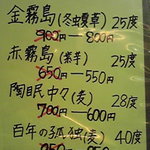 金霧島(冬虫夏草) 25度
900円―800円
赤霧島(紫芋) 25度
650―550円
陶眠中々(麦) 28度
700―600円
百年の孤独(麦) 40度